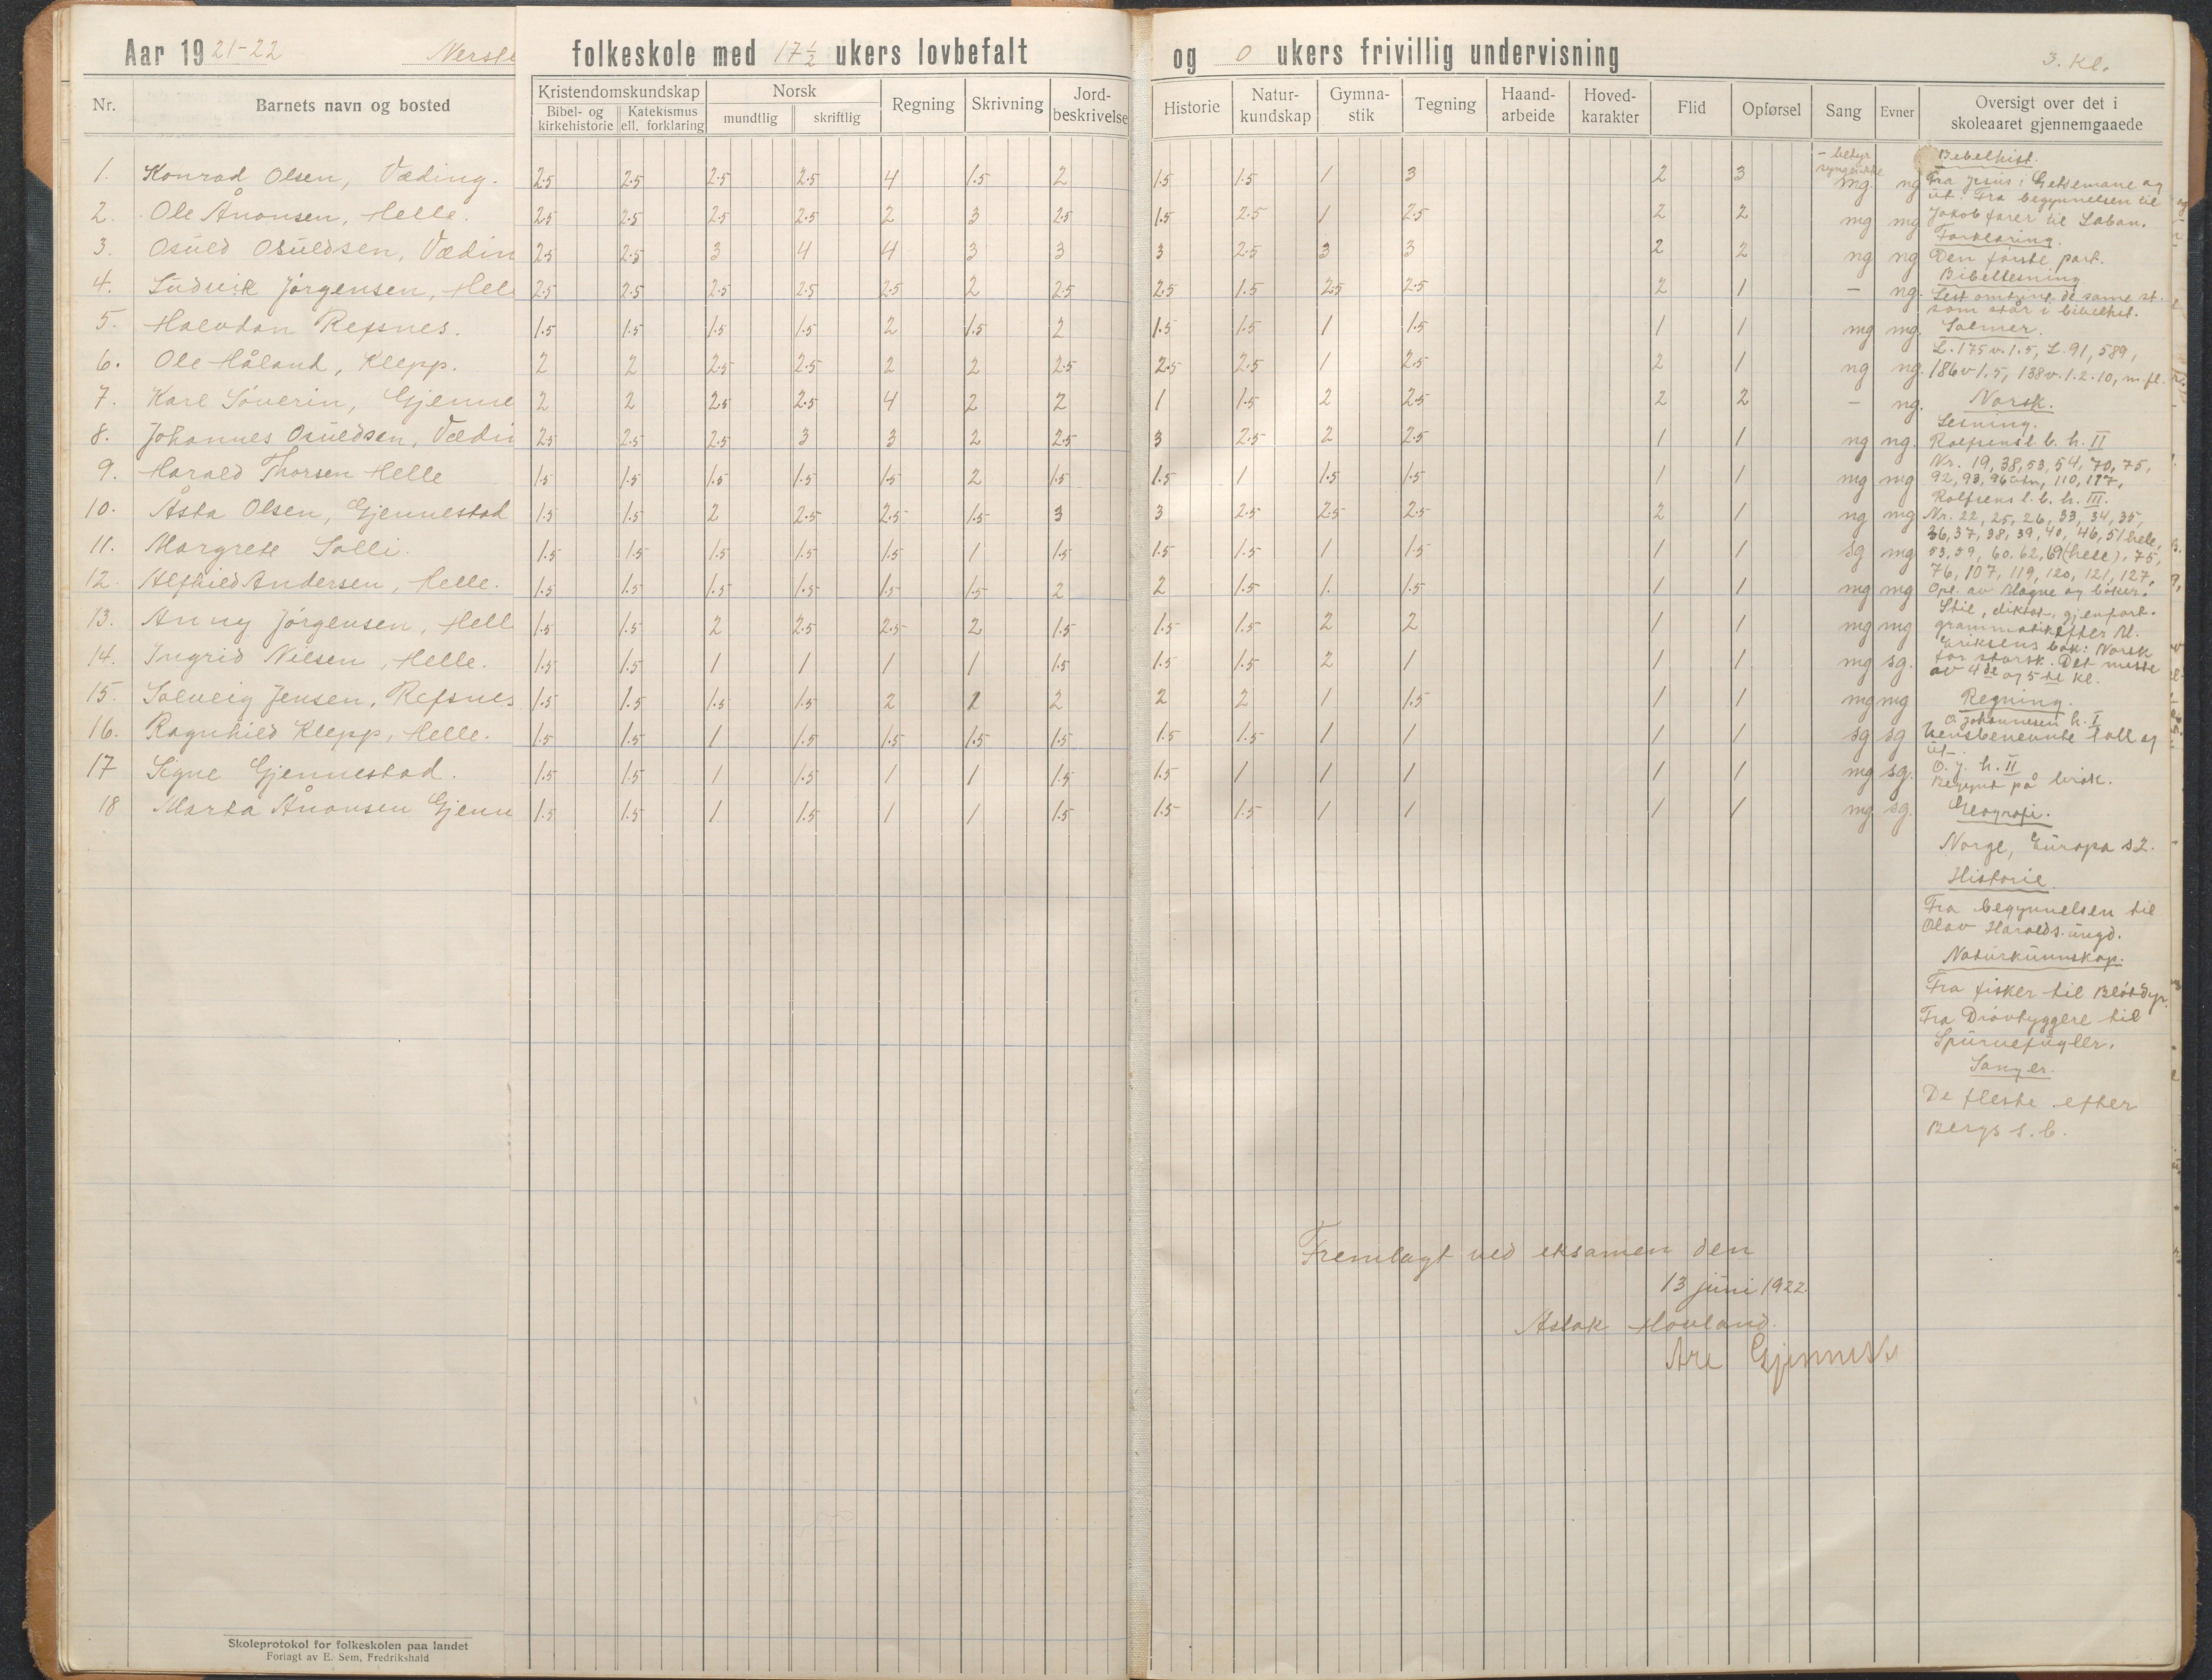 Aar 1921-22 folkeskole med 17 1/2 ukers lovbefalt og 0 ukers frivillig undervisning 3. Kl.
Nr. Barnets navn og bosted Kristendomskundskap Bibel- og kirkehistorie Katekismus ell. forklaring Norsk mundtlig skriftlig Regning Skrivning Jord-beskrivelse Historie Natur-kundskap Gymna-stik Tegning Haand-arbeide Hoved-karakter Flid Opførsel Sang Evner Oversigt over det i skoleaaret gjennemgaaede
- betyr synger ikke
1. Konrad Olsen, Væding. 2.5 2.5 2.5 2.5 4 1.5 2 1.5 1.5 1 3 2 3 mg ng
2. Ole Ånonsen, Helle. 2.5 2.5 2.5 2.5 2 3 2.5 1.5 2.5 1 2.5 2 2 mg mg
3. Osuld Osuldsen, Vædin 2.5 2.5 3 4 4 3 3 3 2.5 3 3 2 2 ng ng
4. Ludvik Jørgensen, Hell 2.5 2.5 2.5 2.5 2.5 2 2.5 2.5 1.5 2.5 2.5 2 1 - ng.
5. Halvdan Refsnes. 1.5 1.5 1.5 1.5 2 1.5 2 1.5 1.5 1 1.5 1 1 mg mg.
6. Ole Håland, Klepp. 2 2 2.5 2.5 2 2 2.5 2.5 2.5 1 2.5 2 1 ng ng.
7. Karl Søverin, Gjenne 2 2 2.5 2.5 4 2 2 1 1.5 2 2.5 2 2 - ng.
8. Johannes Osuldsen, Vædin 2.5 2.5 2.5 3 3 2 2.5 3 2.5 2 2.5 1 1 ng ng.
9. Harald Thorsen Helle 1.5 1.5 1.5 1.5 1.5 2 1.5 1.5 1 1.5 1.5 1 1 mg mg
10. Åsta Olsen, Gjennestad 1.5 1.5 2 2.5 2.5 1.5 3 3 2.5 2.5 2.5 2 1 ng mg
11. Margrete Solli. 1.5 1.5 1.5 1.5 1.5 1 1.5 1.5 1.5 1 1.5 1 1 sg mg
12. Alfhild Andersen, Helle. 1.5 1.5 1.5 1.5 1.5 1.5 2 2 1.5 1. 1.5 1 1 mg mg
13. Anny Jørgensen, Hell 1.5 1.5 2 2.5 2.5 2 1.5 1.5 1.5 2 2 1 1 mg mg
14. Ingrid Nilsen, Helle. 1.5 1.5 1 1 1 1 1.5 1.5 1.5 2 1 1 1 mg sg.
15. Solveig Jensen, Refsnes 1.5 1.5 1.5 1.5 2 1 2 2 2 1 1.5 1 1 mg mg
16. Ragnhild Klepp, Helle. 1.5 1.5 1 1.5 1.5 1.5 1.5 1.5 1.5 1 1 1 1 sg sg
17 Signe Gjennestad. 1.5 1.5 1 1.5 1 1 1.5 1.5 1 1 1 1 1 mg sg.
18 Marta Ånonsen Gjenn 1.5 1.5 1 1.5 1 1 1.5 1.5 1.5 1 1 1 1 mg sg.
Bibelhist.
Fra Jesus i Getsemane og
ut. Fra begynnelsen til
Jakob farer til Laban.
Forklaring.
Den første part.
Bibellesning
Lest omtrent de same st.
som står i bibelhist.
Salmer.
L. 175 v. 1.5, L. 91, 589,
186 v 1.5, 138 v. 1.2.10, m.fl.
Norsk.
Lesning.
Rolfsens l. b. h. II
Nr. 19, 38, 53, 54, 70, 75,
92, 93, 110, 117,
Rolfsens l. b. h. III.
Nr. 22, 25, 26, 33, 34, 35,
36, 37, 38, 39, 40, 46, 51 hele,
53, 59, 60. 62, 69 (hele), 75,
76, 107, 119, 120, 121, 127,
Opl. av Magne og bøker.
Stil, diktat, gjenfort.
grammatikk efter M.
Eriksens bok: Norsk
for norsk. Det meste
av 4de og 5te kl.
Regning.
O. Johannesen h. I
Uensbenevnte tall og
ut.
O. J. h. II
Begynt på brøk.
Geografi.
Norge, Europa s 2.
Historie.
Fra begynnelsen til
Olav Haralds. ungd.
Naturkunnskap.
Fra fisker til Bløtdyr.
Fra Drøvtyggere til
Spurvefugler.
Sanger.
De fleste efter
Bergs s. b.
Fremlagt ved eksamen den
13 juni 1922.
Aslak Hovland.
Are
Skoleprotokol for folkeskolen paa landet
Forlagt av E. Sem, Fredrikshald